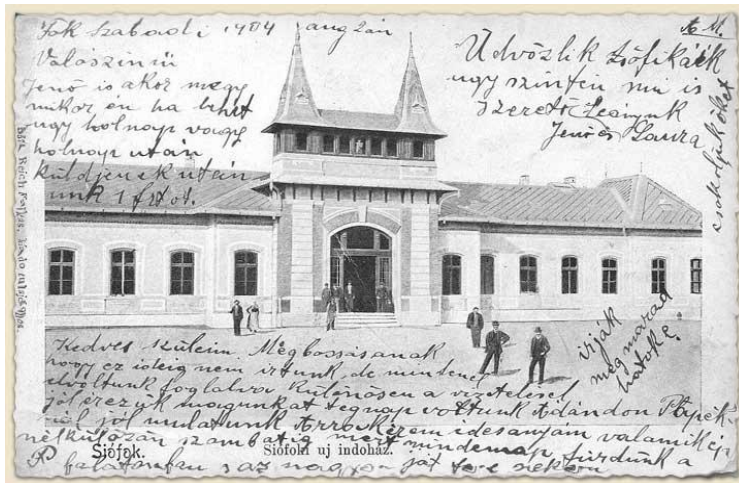 Fok szabadi 1904 aug 2án
Valószinű
Jenő is akor megy
mikor én ha lehet
ugy holnap vagy
holnapután
küldjenek után
unk 1 frtot.
A M.
Üdvözlik Zsófikáék
ugy szintén mi is
szerető Leányuk
Jenő és Laura
csokoljuk őket
irják
meg marad
hatok e?
Kedves szüleim. Megbossásanak
hogy ez ideig nem irtunk de mintenel
elvoltunk foglalva különösen a vizeteleset
jól érezük magunkat tegnap voltunk Adándon Pápék
nál jól mulatunk Arra kérem édesanyám valamikép
nélkülözön szombatig mert mindennap fürdunk a
Balatonban s az nagyon jót nekem
Siófok.
Siófoki uj indoház.